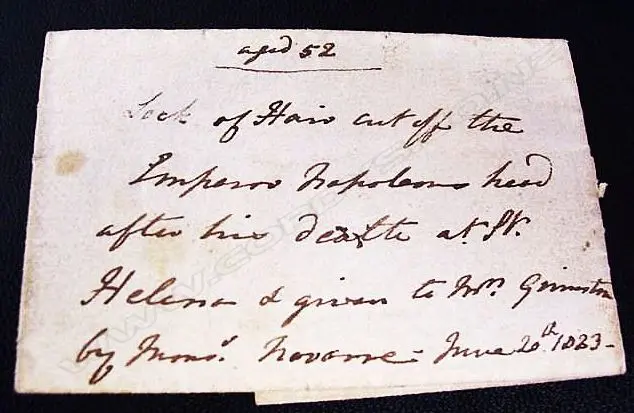 aged 52
Lock of Hair cut off the
Emperor Napoleons head
after his death at St.
Helena & given to Mrs. Grimston
by Monsr. Navarre - June 20th 1823 -